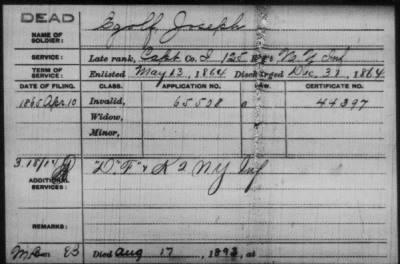 DEAD
NAME OF SOLDIER: Egolf Joseph
SERVICE: Late rank, Capt Co. I, 125 Reg't N.Y. Inf
TERM OF SERVICE: Enlisted May 13, 1864 Discharged Dec. 31, 1864
DATE OF FILING. CLASS. APPLICATION NO. LAW. CERTIFICATE NO.
1865 Apr. 10 Invalid, 65528 a 44397
Widow,
Minor,
ADDITIONAL SERVICES: "D" "F" & K 2 NY Inf
REMARKS:
Died Aug 17, 1893, at